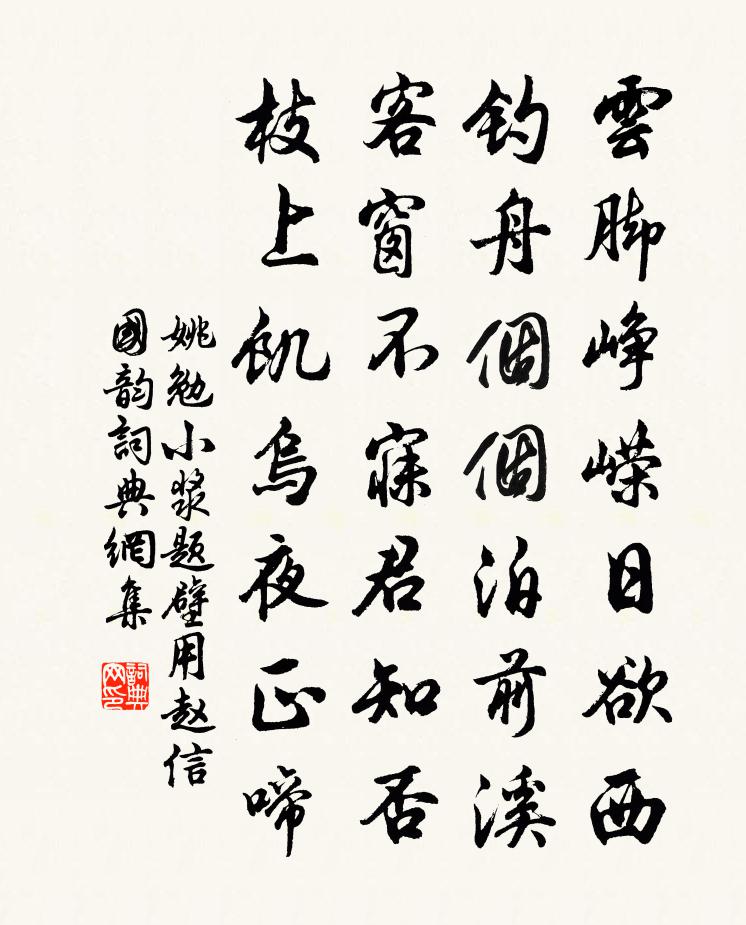 雲脚峥嵘日欲西
钓舟個個泊前溪
客窗不寐君知否
枝上飢烏夜正啼
姚勉小漿题壁用赵信
國韵詞典網集
詞典网印